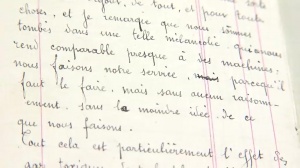 de tout, et pour toute
chose, et je remarque que nous sommes
tombés dans une telle mélancolie, qui nous
rend comparable presque à des machines,
nous faisons notre service, parcequ'il
faut le faire, mais sans aucun raisonn-
ement, sans la moindre idée de ce
que nous faisons.
Tout cela est particulièrement l'effet des
gaz toxiques